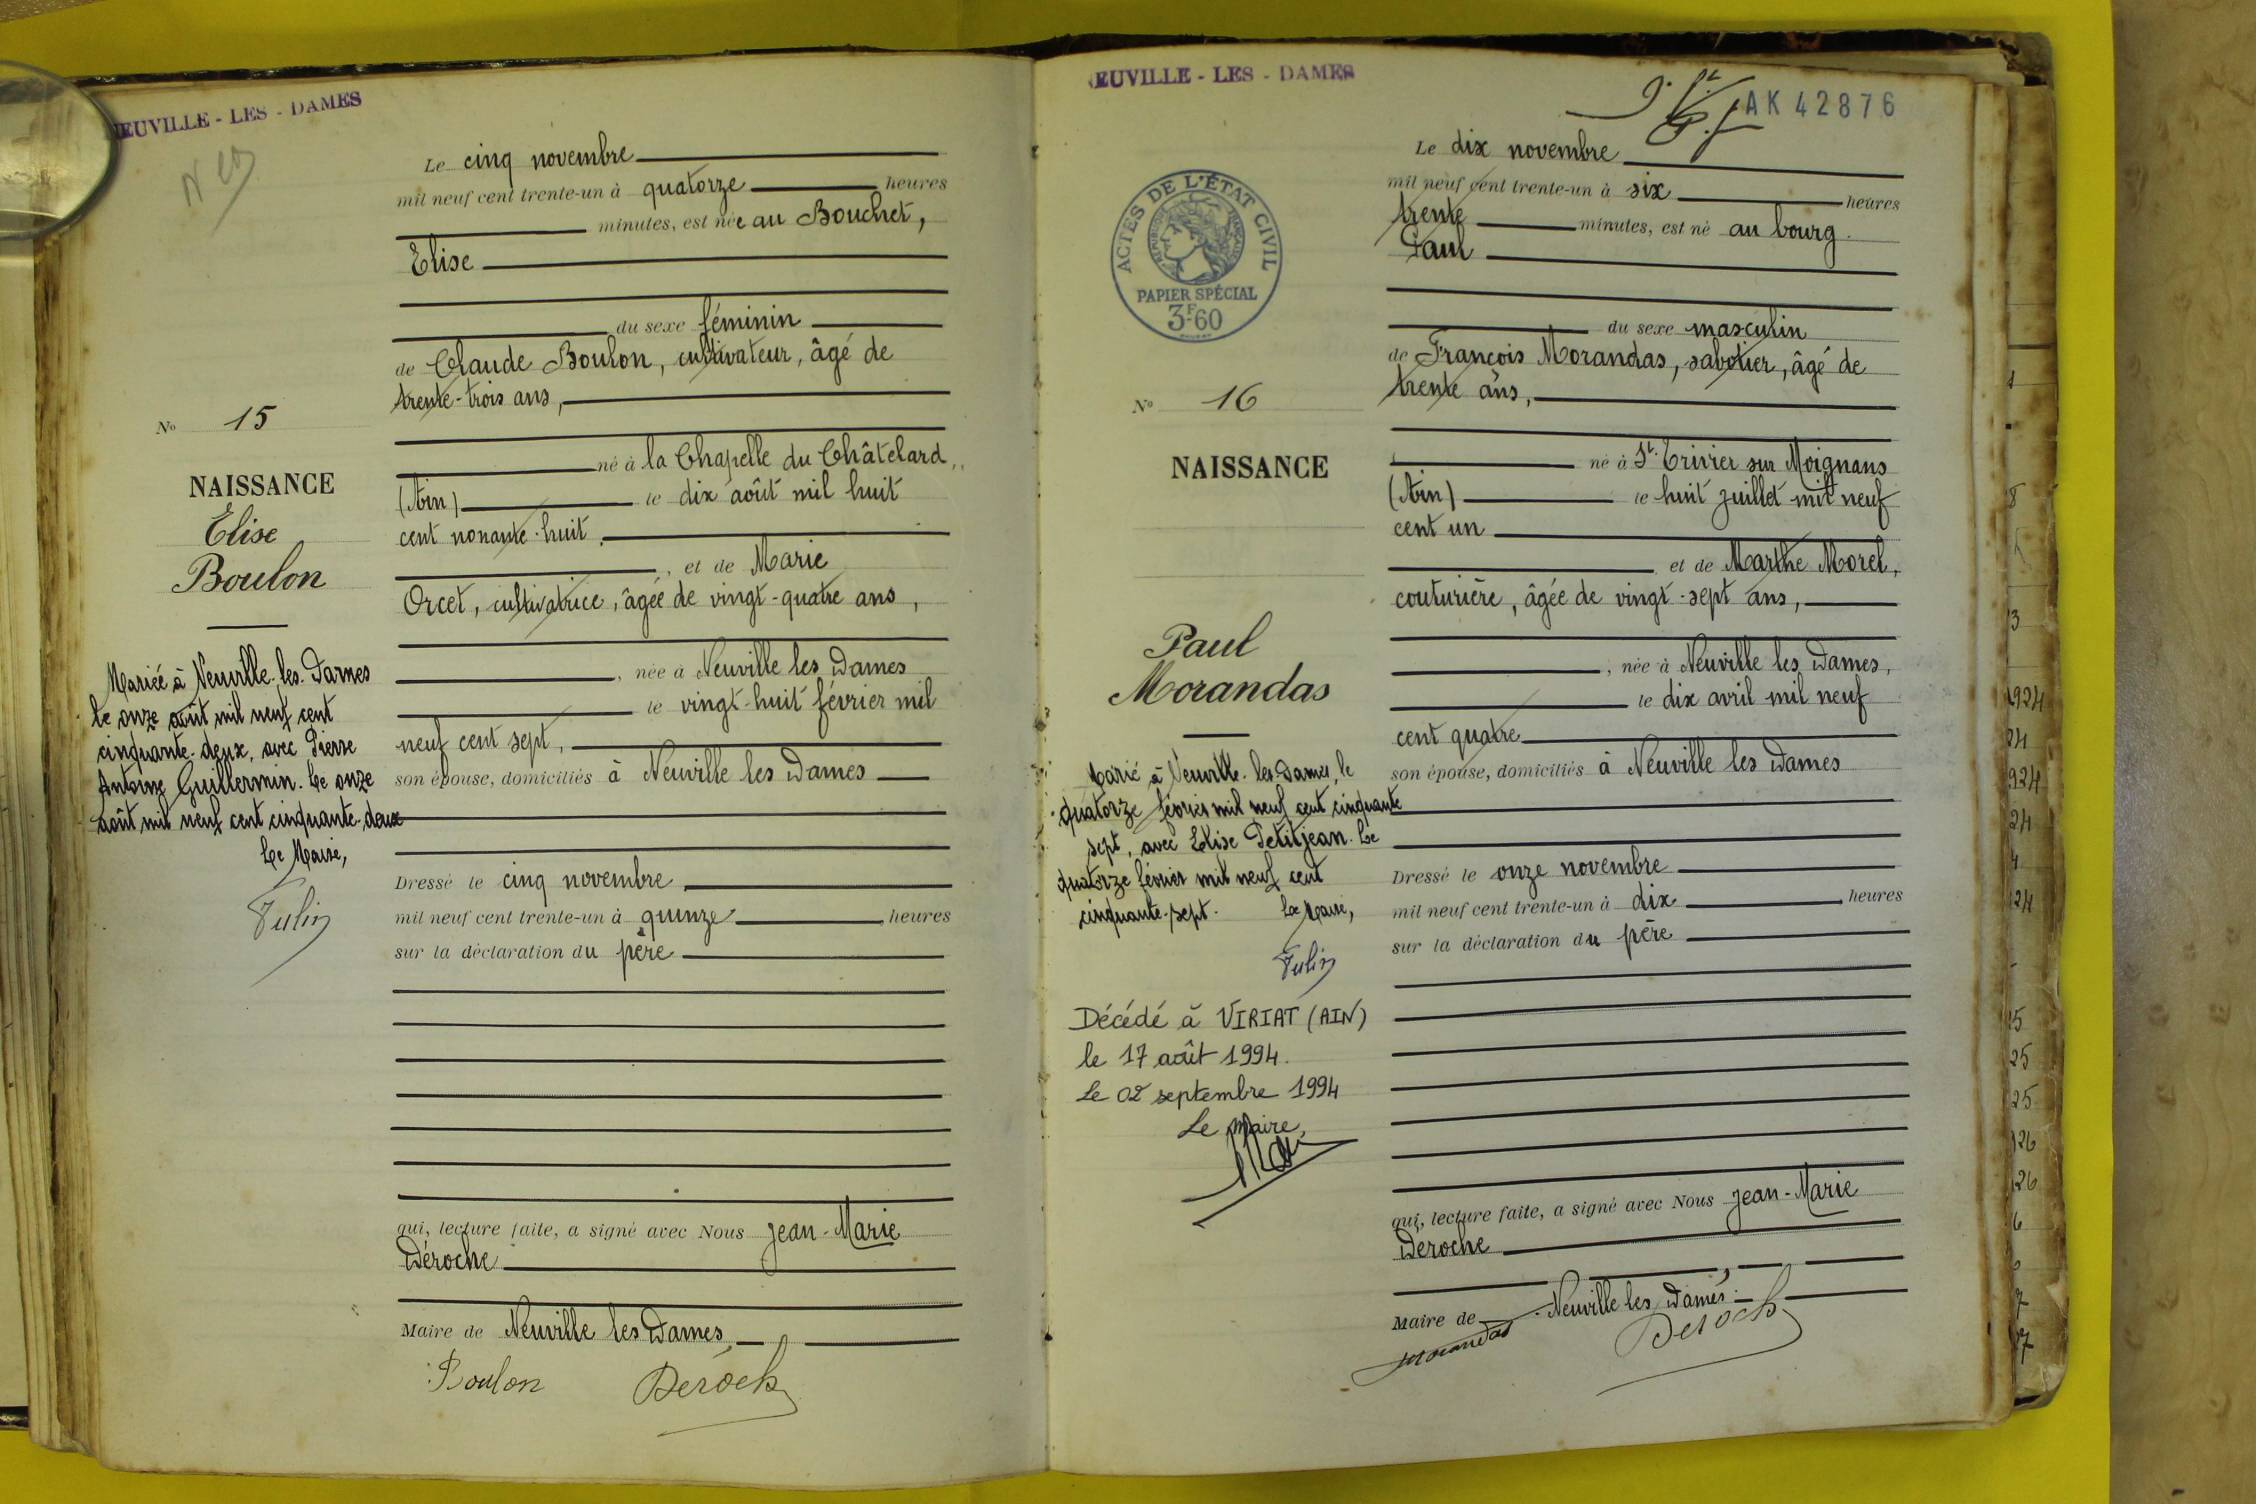 NEUVILLE - LES - DAMES
Le cinq novembre
mil neuf cent trente-un à quatorze heures
minutes, est née au Bouchet,
Elise
du sexe féminin
de Claude Boulon, cultivateur, âgé de
trente-trois ans,
né à la Chapelle du Châtelard,
(Ain) le dix août mil huit
cent nonante-huit,
, et de Marie
Orcet, cultivatrice, âgée de vingt-quatre ans,
, née à Neuville les Dames
le vingt-huit février mil
neuf cent sept,
son épouse, domiciliés à Neuville les Dames
Dressé le cinq novembre
mil neuf cent trente-un à quinze heures
sur la déclaration du père
qui, lecture faite, a signé avec Nous Jean-Marie
Déroche
Maire de Neuville les Dames,
Boulon Déroch
No 15
NAISSANCE
Elise
Boulon
Mariée à Neuville-les-Dames
le onze août mil neuf cent
cinquante-deux, avec Pierre
Antoine Guillermin. Le onze
août mil neuf cent cinquante-deux
Le Maire,
Tulin
EUVILLE - LES - DAMES
AK 42876
Le dix novembre
mil neuf cent trente-un à six heures
trente minutes, est né au bourg
Paul
du sexe masculin
de François Morandas, sabotier, âgé de
trente ans,
né à St. Trivier sur Moignans
(Ain) le huit juillet mil neuf
cent un
et de Marthe Morel,
couturière, âgée de vingt-sept ans,
, née à Neuville les Dames,
le dix avril mil neuf
cent quatre
son épouse, domiciliés à Neuville les Dames
Dressé le onze novembre
mil neuf cent trente-un à dix heures
sur la déclaration du père
qui, lecture faite, a signé avec Nous Jean-Marie
Déroche
Maire de Neuville les Dames.
Morandas Déroch
ACTES DE L'ÉTAT CIVIL
PAPIER SPÉCIAL
3F60
No 16
NAISSANCE
Paul
Morandas
Marié à Neuville-les-Dames, le
quatorze février mil neuf cent cinquante
sept, avec Elise Petitjean. Le
quatorze février mil neuf cent
cinquante-sept. Le Maire,
Tulin
Décédé à VIRIAT (AIN)
le 17 août 1994.
Le 02 septembre 1994
Le Maire,